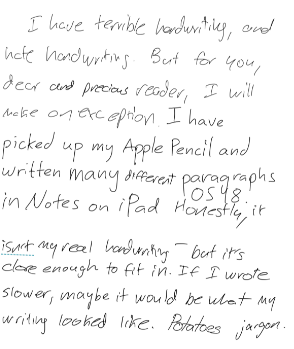 I have terrible handwriting, and
hate handwriting. But for you,
dear and precious reader, I will
make an exception I have
picked up my Apple Pencil and
written many different paragraphs
in Notes on iPad OS 18. Honestly, it
isn't my real handwriting - but it's
close enough to fit in. If I wrote
slower, maybe it would be what my
writing looked like. Potatoes jargon.